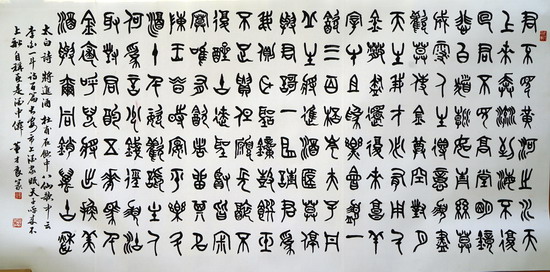 君不見黃河之水天
上來奔流到海不復
回君不見高堂明鏡
悲白髮朝如青絲暮
成雪人生得意須盡
歡莫使金樽空對月
天生我材必有用千
金散盡還復來烹羊
宰牛且為樂會須一
飲三百杯岑夫子丹
丘生將進酒杯莫停
與君歌一曲請君為
我傾耳聽鐘鼓饌玉
不足貴但願長醉不
復醒古來聖賢皆寂
寞唯有飲者留其名
陳王昔時宴平樂斗
酒十千恣歡謔主人
何為言少錢徑須沽
取對君酌五花馬千
金裘呼兒將出換美
酒與爾同銷萬古愁
太白詩 將進酒 杜甫在飲中八仙歌中云
李白一斗詩百篇長安市上酒家眠天子呼來不
上船自稱臣是酒中僊